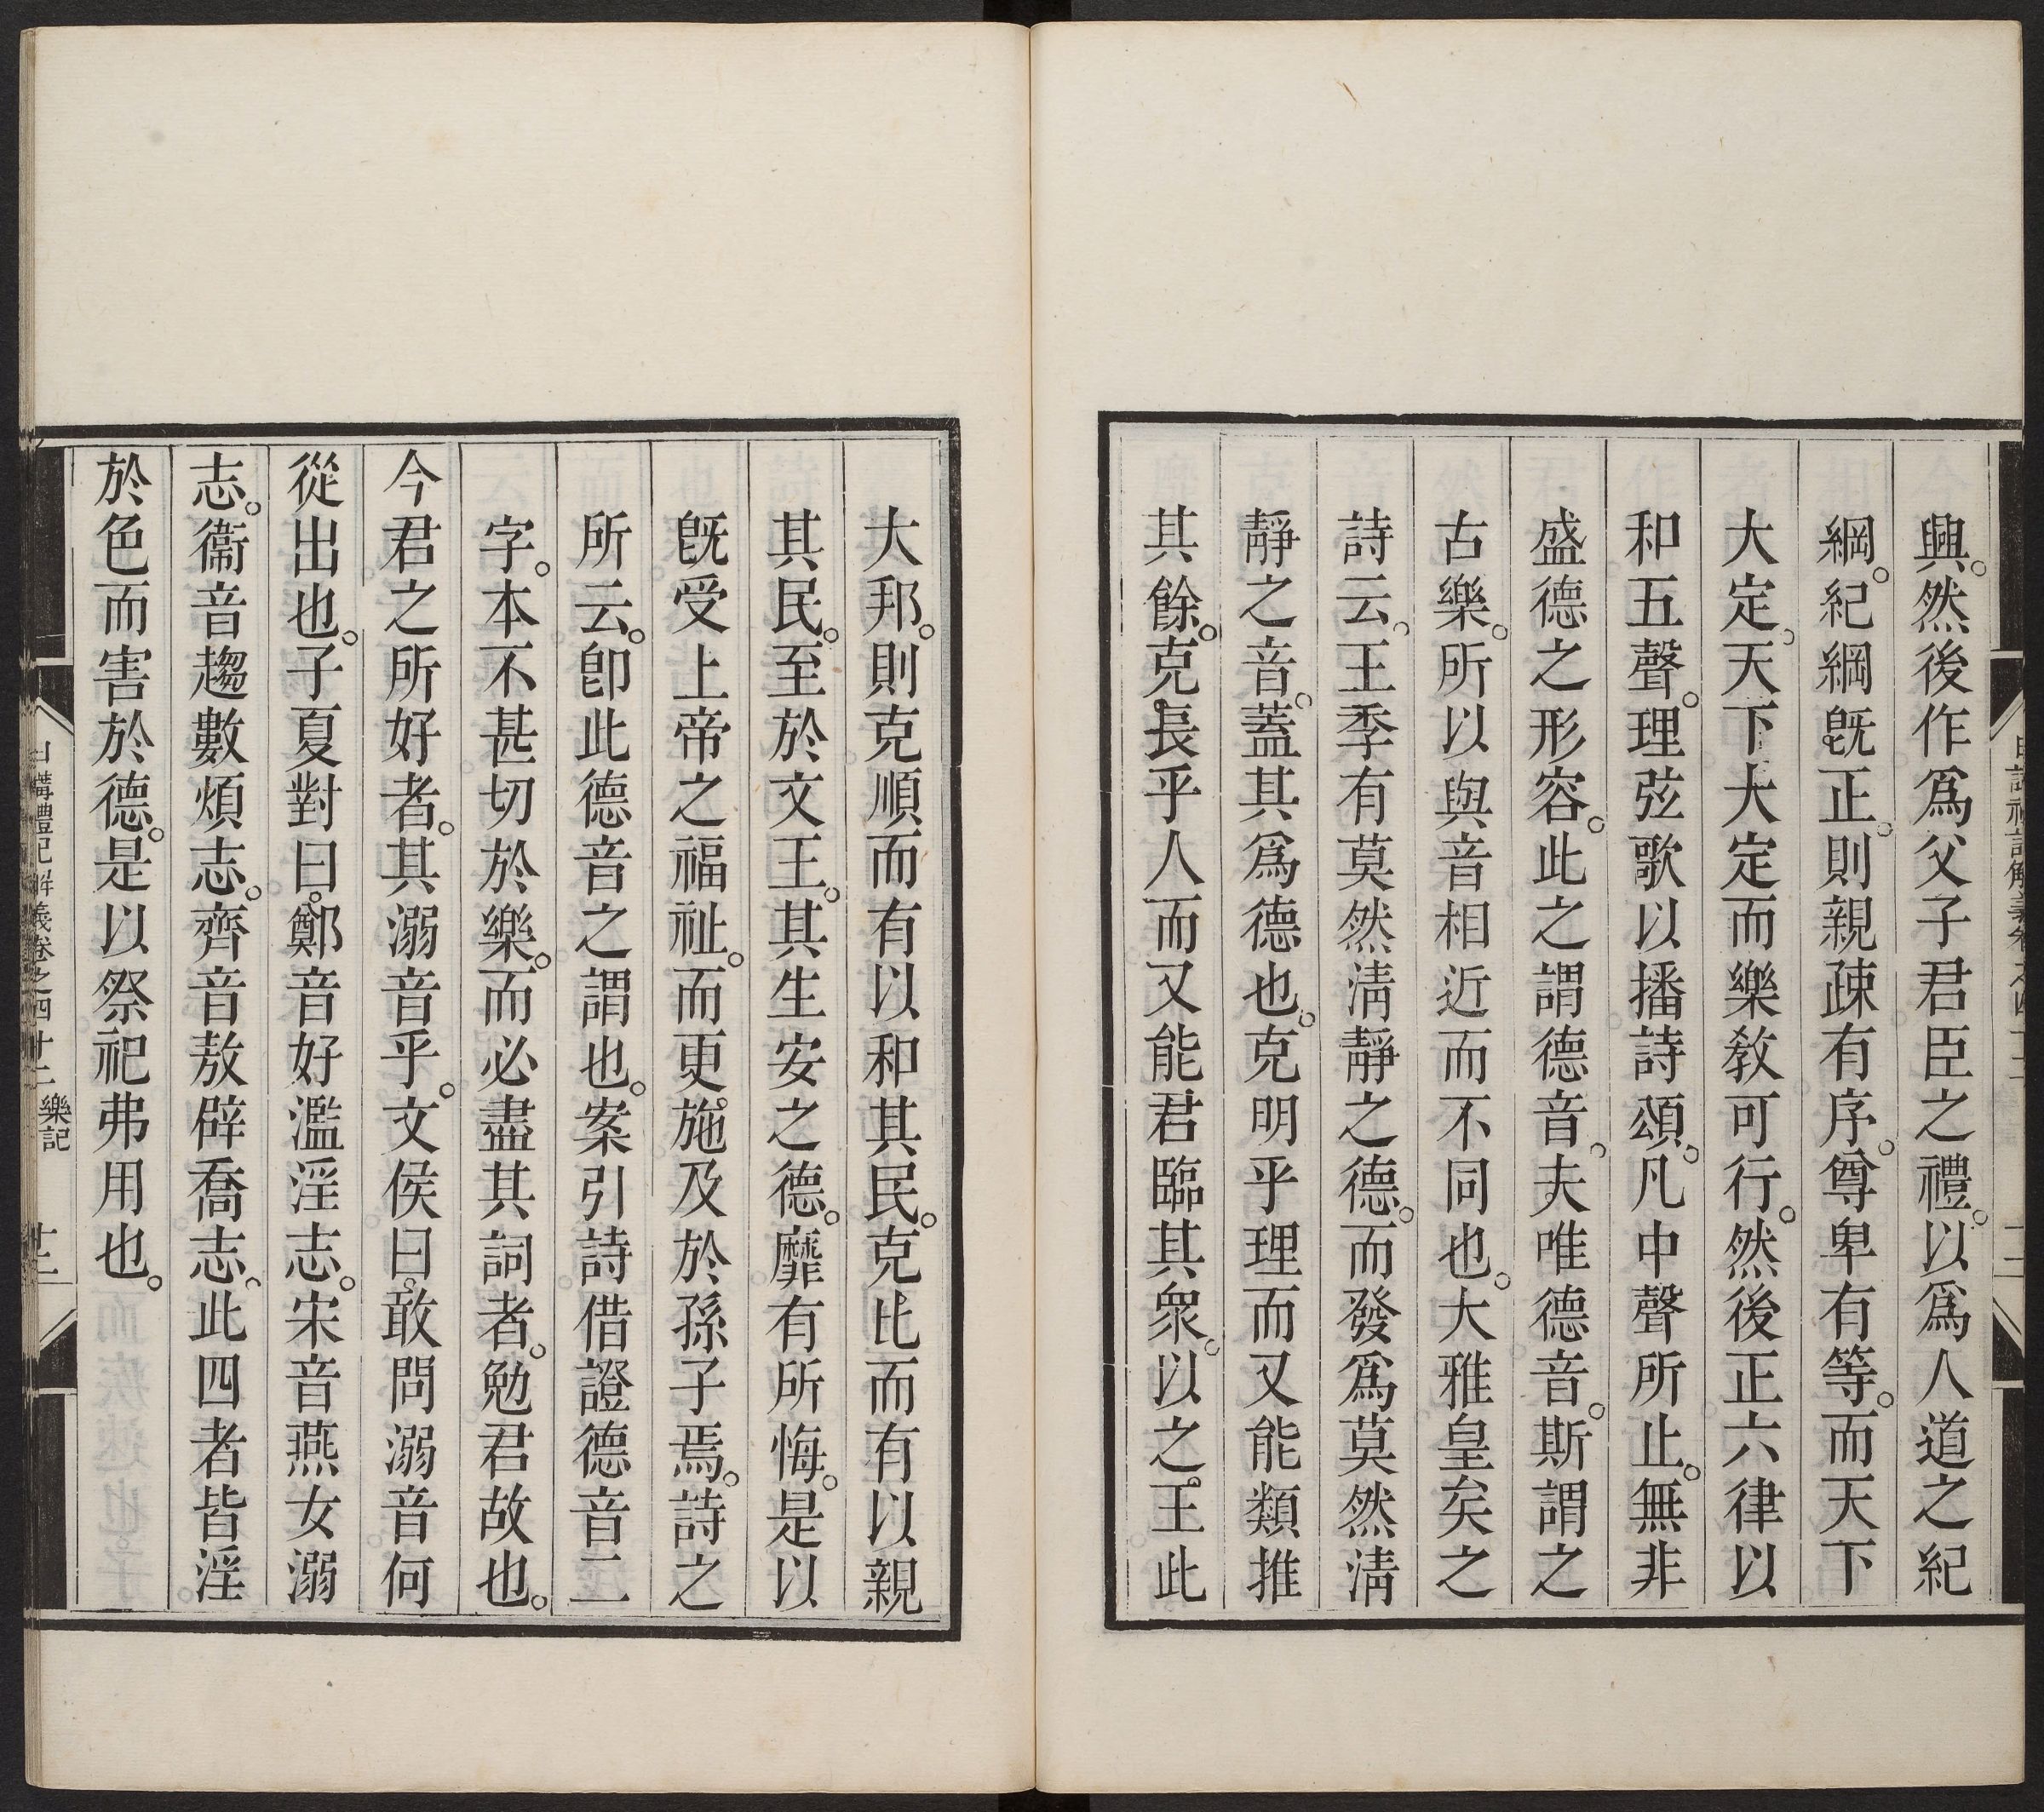 興。然後作爲父子君臣之禮。以爲人道之紀
綱。紀綱旣正。則親疎有序。尊卑有等。而天下
大定。天下大定而樂敎可行。然後正六律以
和五聲。理弦歌以播詩頌。凡中聲所止。無非
盛德之形容。此之謂德音。夫唯德音。斯謂之
古樂。所以與音相近而不同也。大雅皇矣之
詩云。王季有莫然淸靜之德。而發爲莫然淸
靜之音。蓋其爲德也。克明乎理而又能類推
其餘。克長乎人而又能君臨其衆。以之王此
大邦。則克順而有以和其民。克比而有以親
其民。至於文王。其生安之德。靡有所悔。是以
旣受上帝之福祉。而更施及於孫子焉。詩之
所云。卽此德音之謂也。案引詩借證德音二
字。本不甚切於樂。而必盡其詞者。勉君故也。
今君之所好者。其溺音乎。文侯曰。敢問溺音何
從出也。子夏對曰。鄭音好濫淫志。宋音燕女溺
志。衞音趨數煩志。齊音敖辟喬志。此四者皆淫
於色而害於德。是以祭祀弗用也。
日講禮記解義卷之四十二 樂記 十二